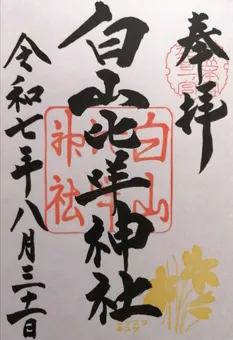 奉拝
白山比咩神社
令和七年八月三十一日
白山
比咩
神社